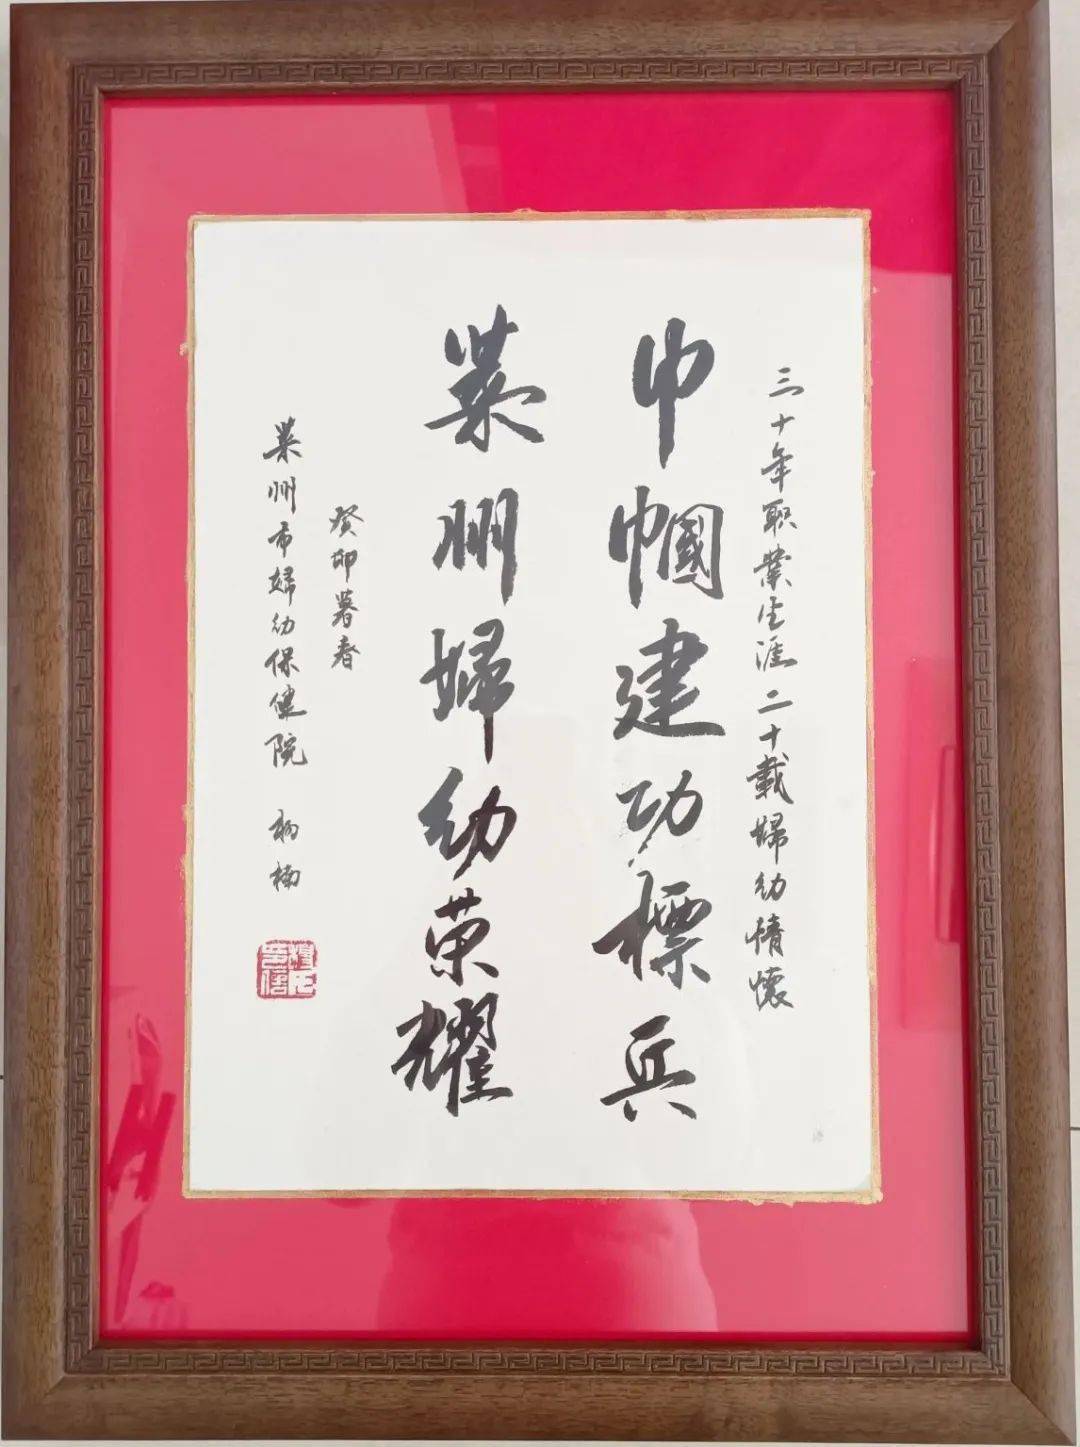 三十年职业生涯二十载婦幼情懷
巾帼建功標兵
莱州婦幼荣耀
癸卯暮春
莱州市婦幼保健院 杨楠